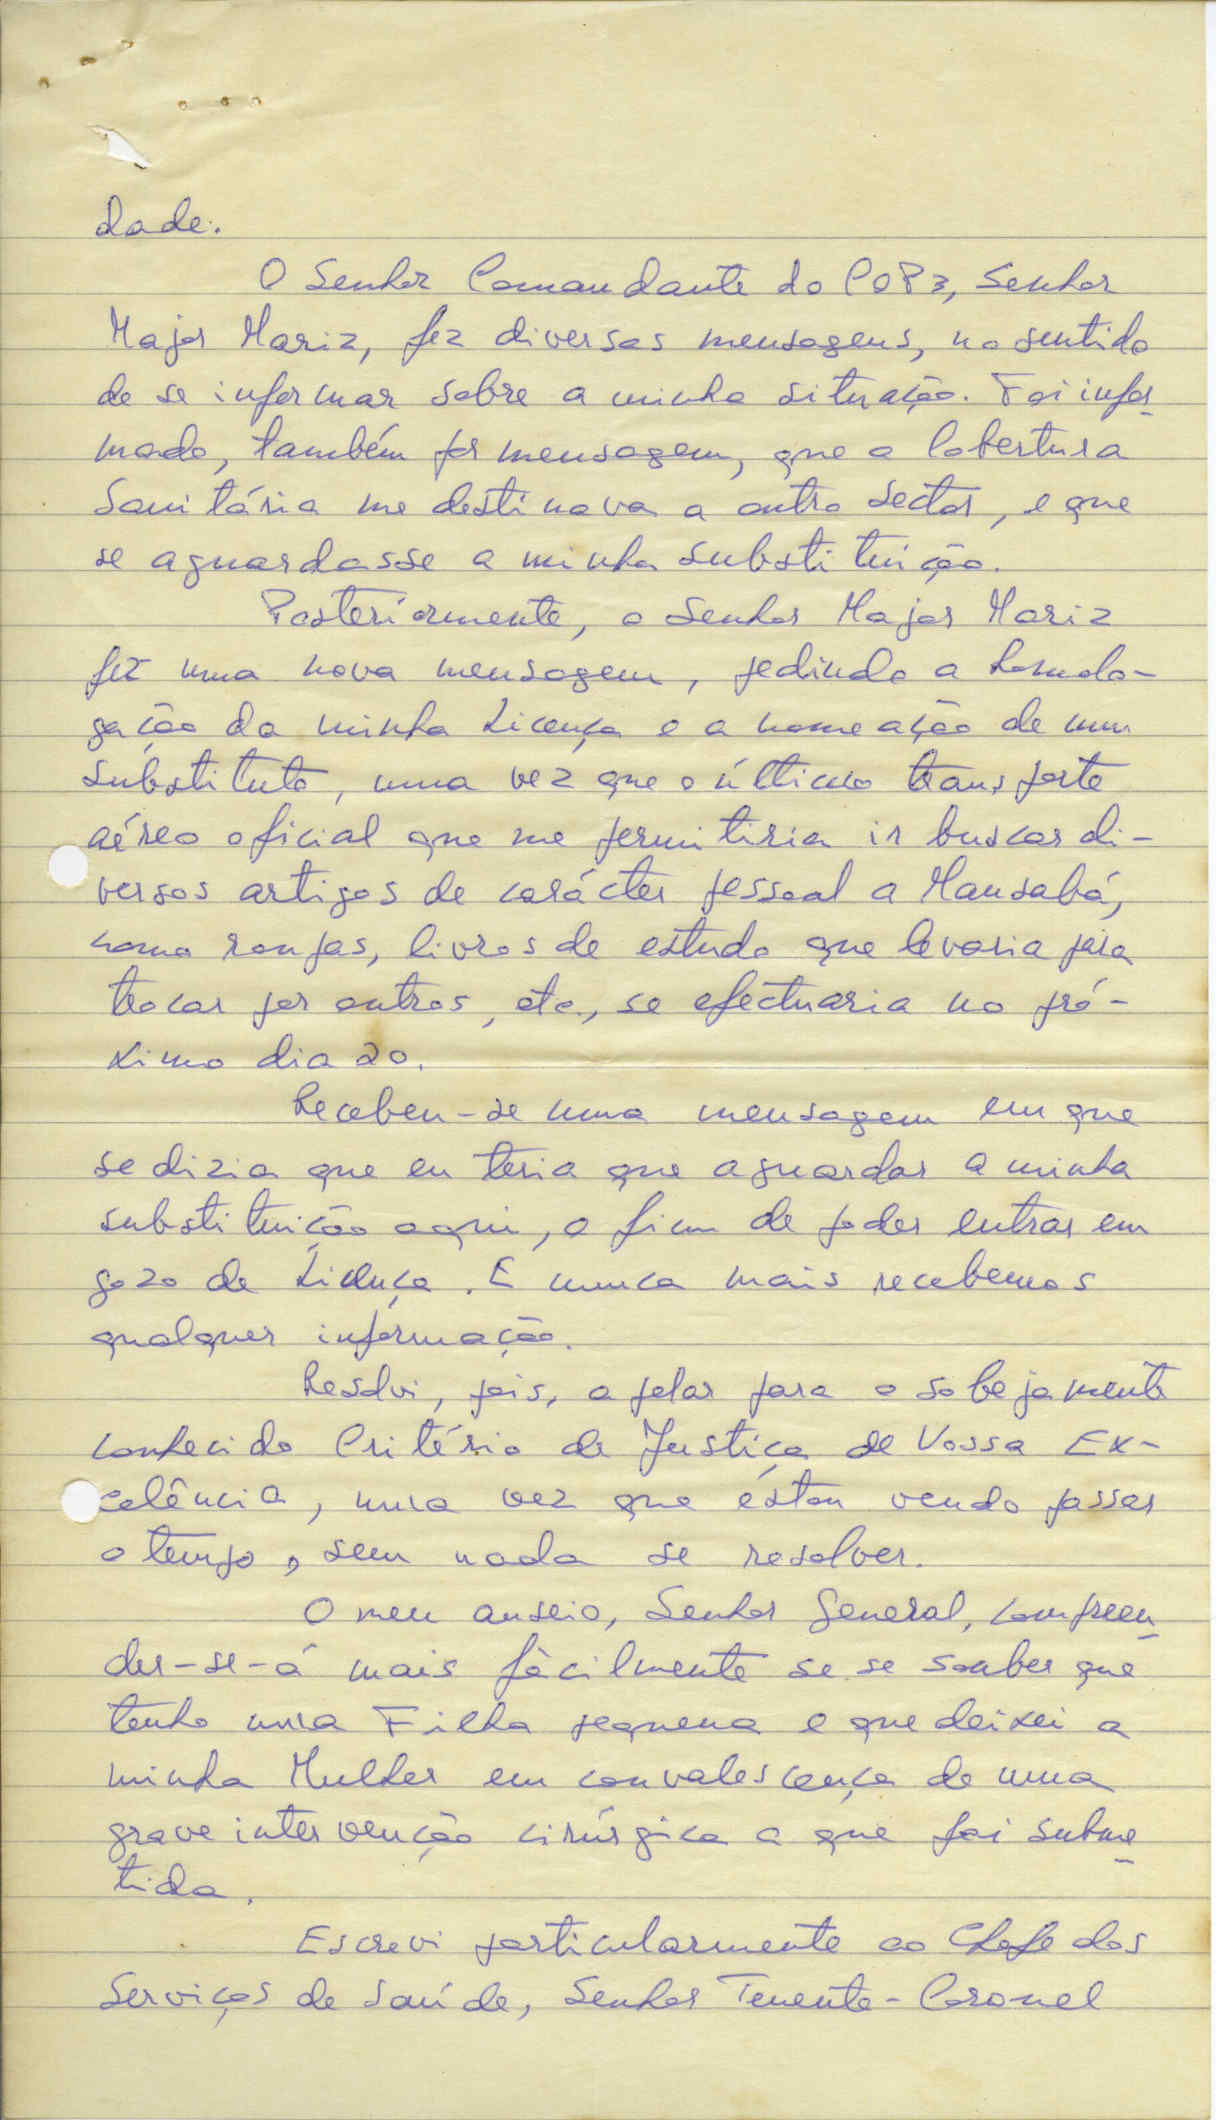 dade.
O Senhor Comandante do COP3, Senhor
Major Mariz, fez diversas mensagens, no sentido
de se informar sobre a minha situação. Foi infor
mado, também por mensagem, que a Cobertura
Sanitária me destinava a outro sector, e que
se aguardasse a minha substituição.
Posteriormente, o Senhor Major Mariz
fez uma nova mensagem, pedindo a homolo-
gação da minha Licença e a nomeação de um
substituto, uma vez que o último transporte
aéreo oficial que me permitiria ir buscar di-
versos artigos de carácter pessoal a Mansabá,
como roupas, livros de estudo que levaria para
trocar por outros, etc., se efectuaria no pró-
ximo dia 20.
Recebeu-se uma mensagem em que
se dizia que eu teria que aguardar a minha
substituição aqui, a fim de poder entrar em
gozo de Licença. E nunca mais recebemos
qualquer informação.
Resolvi, pois, apelar para o sobejamente
conhecido Critério de Justiça de Vossa Ex-
celência, uma vez que estou vendo passar
o tempo, sem nada se resolver.
O meu anseio, Senhor General, compreen
der-se-á mais fàcilmente se se souber que
tenho uma Filha pequena e que deixei a
minha Mulher em convalescença de uma
grave intervenção cirúrgica a que foi subme
tida.
Escrevi particularmente ao Chefe dos
Serviços de Saúde, Senhor Tenente-Coronel